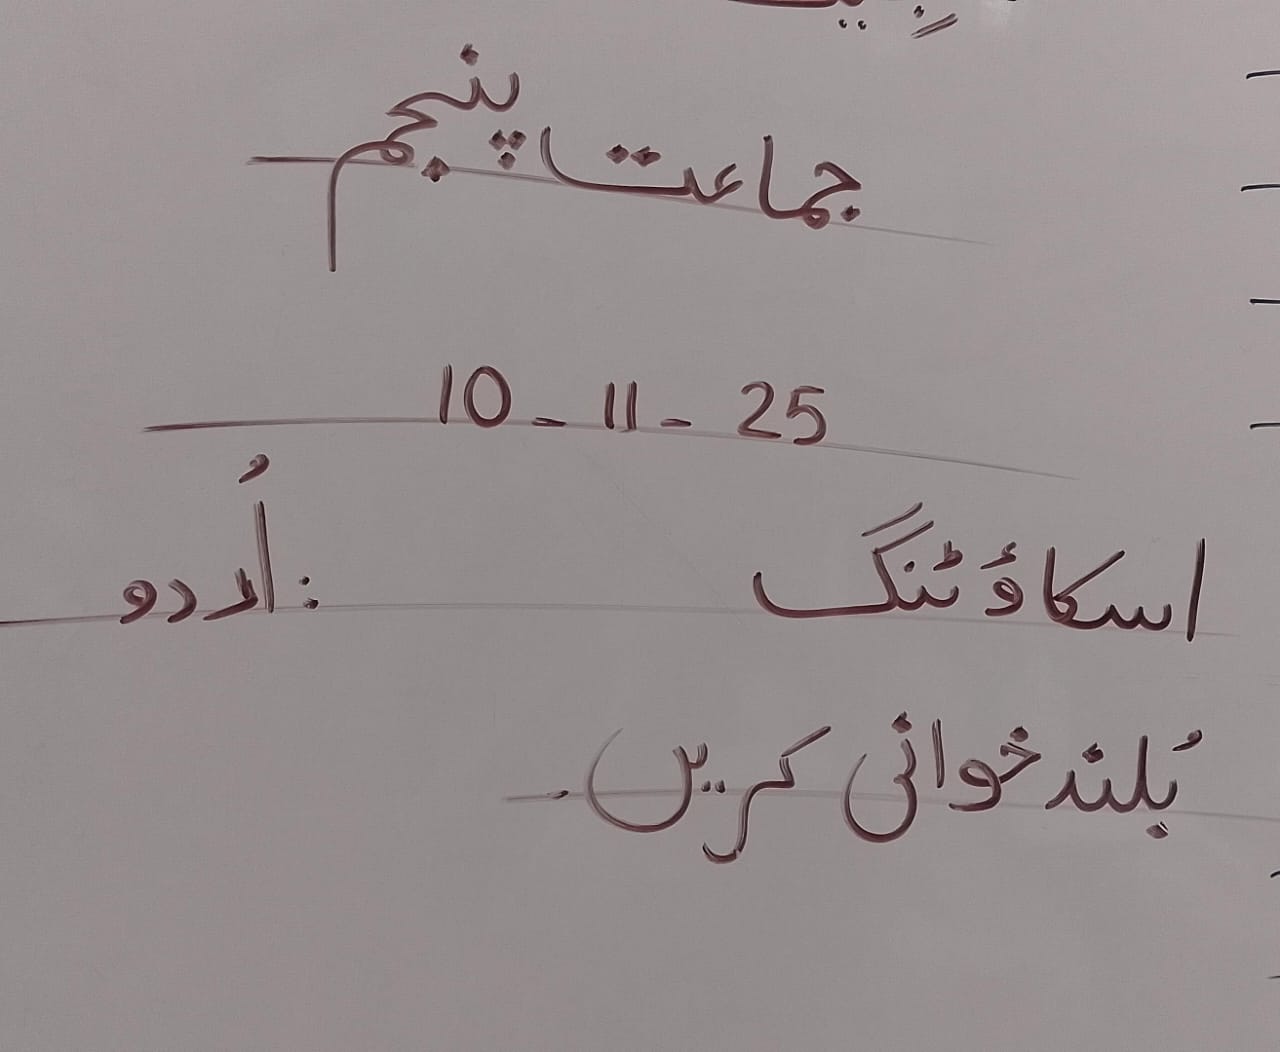 جماعت پنجم
10 - 11 - 25
اسکاؤٹنگ :اُردو
بُلند خوانی کریں۔